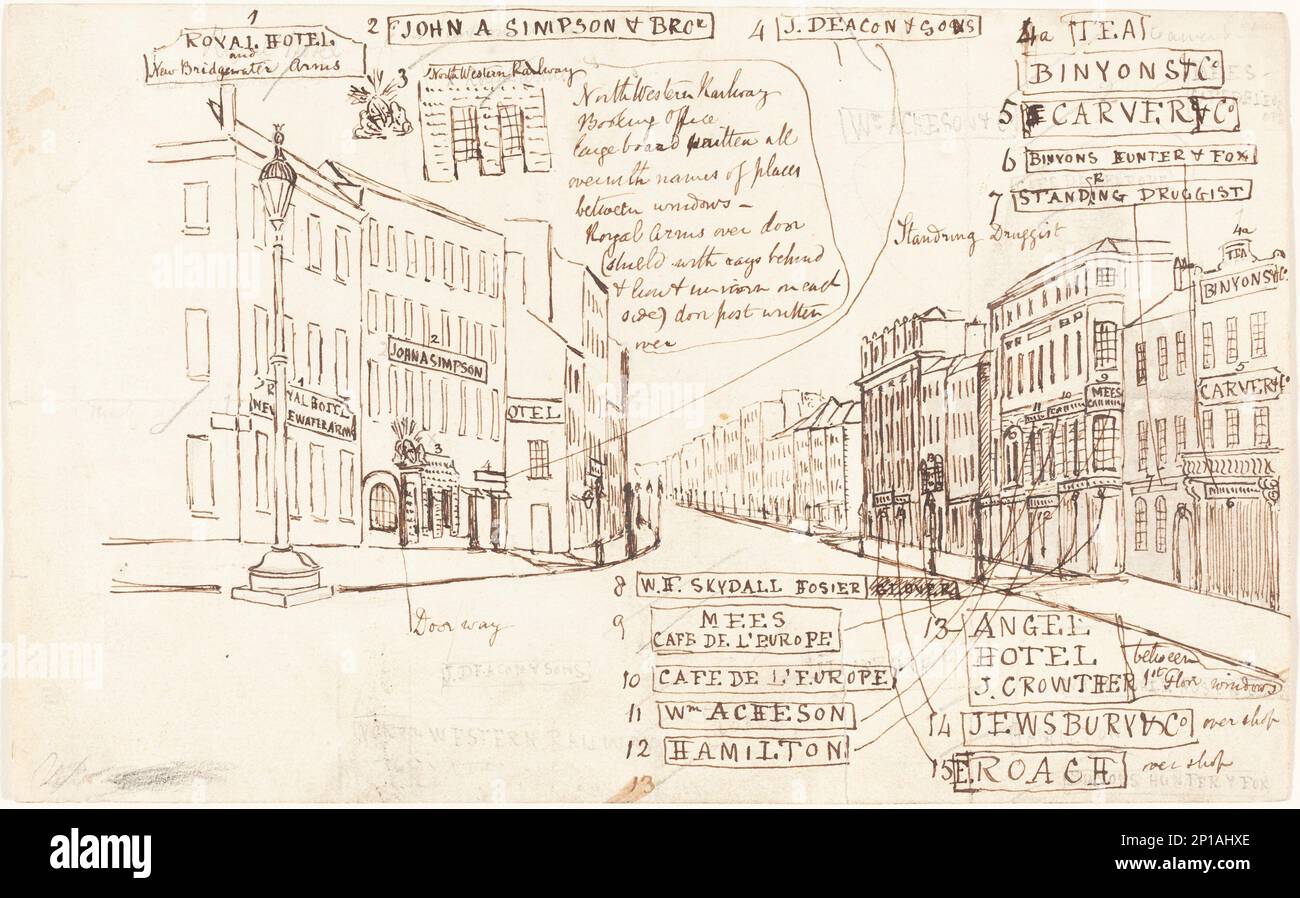 1
ROYAL HOTEL
and
New Bridgewater Arms
2 JOHN A SIMPSON & BROR
3 North Western Railway
North Western Railway
Booking Office
large board written all
over with names of places
between windows –
Royal Arms over door
(shield with rays behind
& lion & unicorn on each
side) door post written
over
4 J. DEACON & SONS
4a TEA
BINYONS & Co
5 CARVER & Co
6 BINYONS HUNTER & FOX
R
7 STANDING DRUGGIST
Standring Druggist
Wm ACHESON &
4a
TEA
BINYONS & Co
5
CARVER & Co
6
7
2
JOHN A SIMPSON
1
ROYAL HOTEL
NEW EWATER ARMS
3
4
OTEL
9
MEES
10
11
12
Doorway
8 W.H. SKYDALL HOSIER GLOVER
9 MEES
CAFE DE L'EUROPE
10 CAFE DE L'EUROPE
11 Wm ACHESON
12 HAMILTON
13 ANGEL
HOTEL
J. CROWTHER
between
1st floor windows
14 JEWSBURY & Co over shop
15 E. ROACH over shop
J. DEACON & SONS
NORTH WESTERN RAILWAY
HUNTER & FOX
13
alamy
Image ID: 2P1AHXE
www.alamy.com